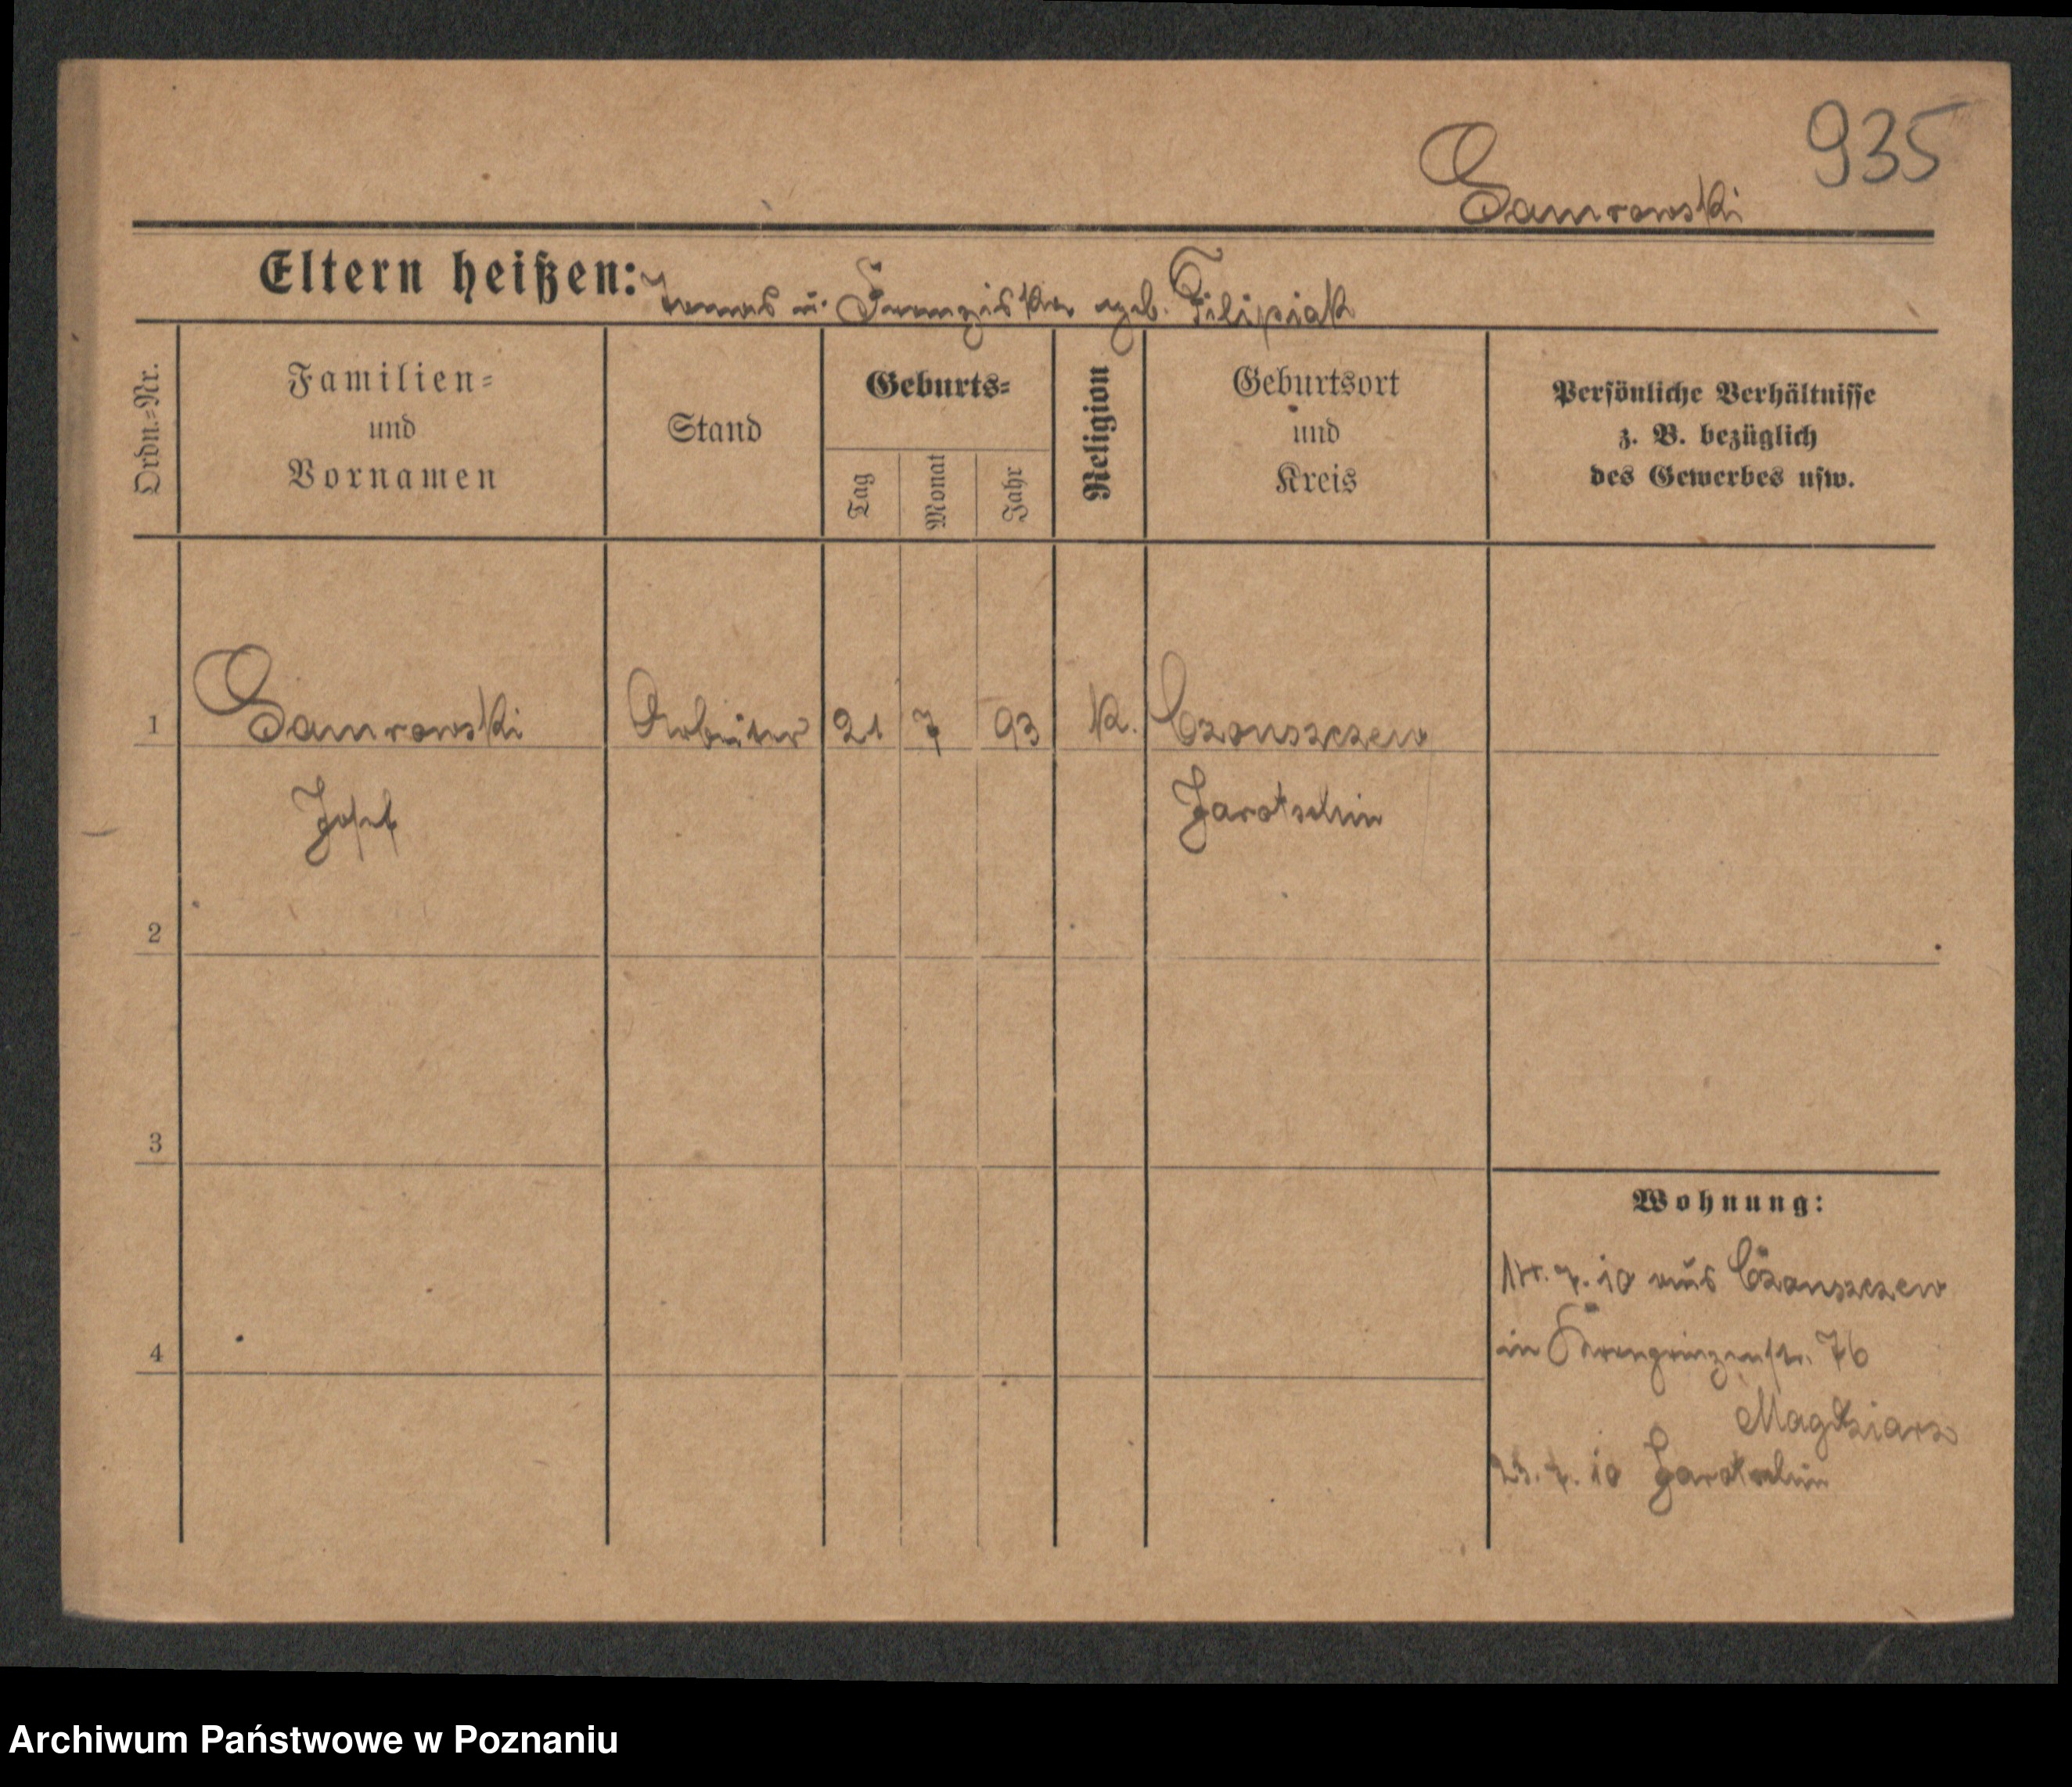 935
Gamrowski
Eltern heißen: Tomas u. Franziska geb. Filipiak
Ordn.-Nr.
Familien-
und
Vornamen
Stand
Geburts-
Tag
Monat
Jahr
Religion
Geburtsort
und
Kreis
Persönliche Verhältnisse
z. B. bezüglich
des Gewerbes usw.
1 Gamrowski Arbeiter 21 7 93 K. Czonszczew
Josef Jarotschin
2
3
4
Wohnung:
14. 7. 10 aus Czonszczew
in Kronprinzenstr. 76
Magdziarz
23. 7. 10 Jarotschin
Archiwum Państwowe w Poznaniu